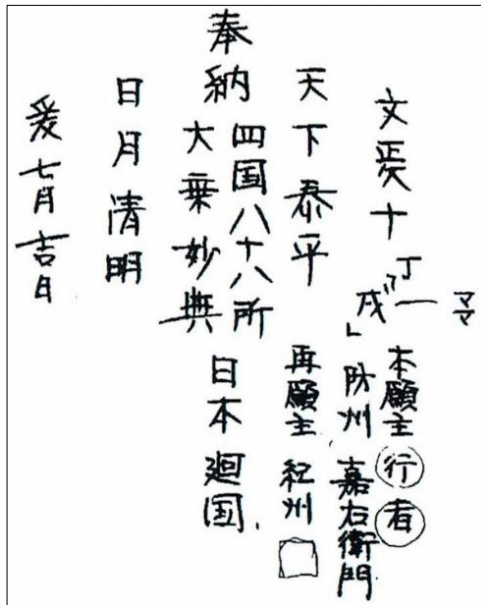 文十 丁「戌」 ママ
本願主 行者
防州 嘉右衛門
天下泰平
再願主 紀州 □
奉納
四国八十八所
大乗妙典
日本廻国
日月清明
七月吉日